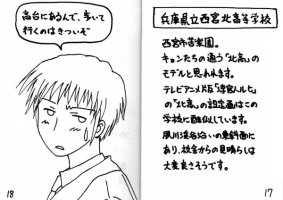 兵庫県立西宮北高等学校
西宮市苦楽園。
キョンたちの通う「北高」の
モデルと思われます。
テレビアニメ版「涼宮ハルヒ」
の"北高"の設定画はこの
学校に酷似しています。
夙川渓谷沿いの東斜面に
あり、校舎からの見晴らしは
大変良さそうです。
17
高台にあるんで、歩いて
行くのはきついぞ
18